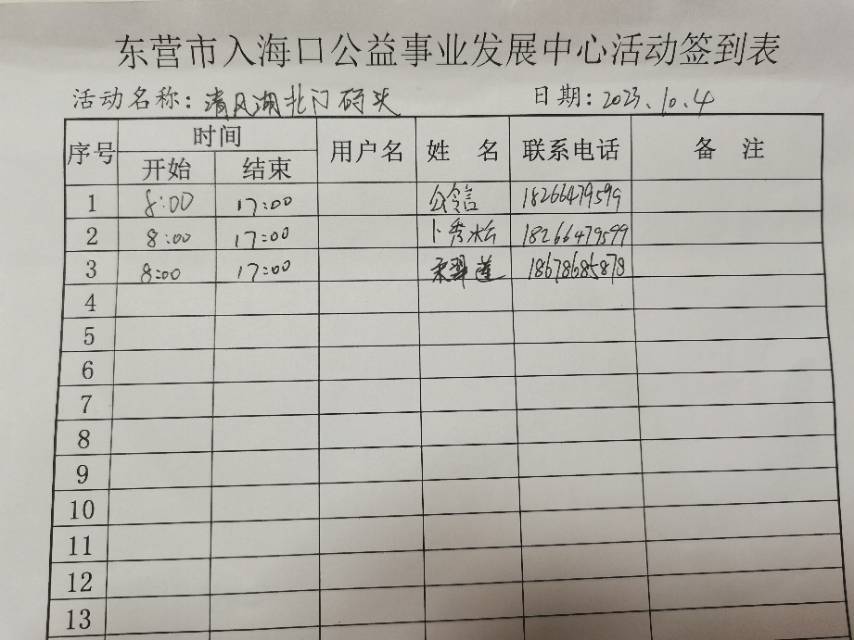 东营市入海口公益事业发展中心活动签到表
活动名称：清风湖北门码头 日期：2023.10.4
序号 时间 用户名 姓 名 联系电话 备 注
开始 结束
1 8:00 17:00 18266479599
2 8:00 17:00 卜秀 18266479599
3 8:00 17:00 18678685878
4
5
6
7
8
9
10
11
12
13